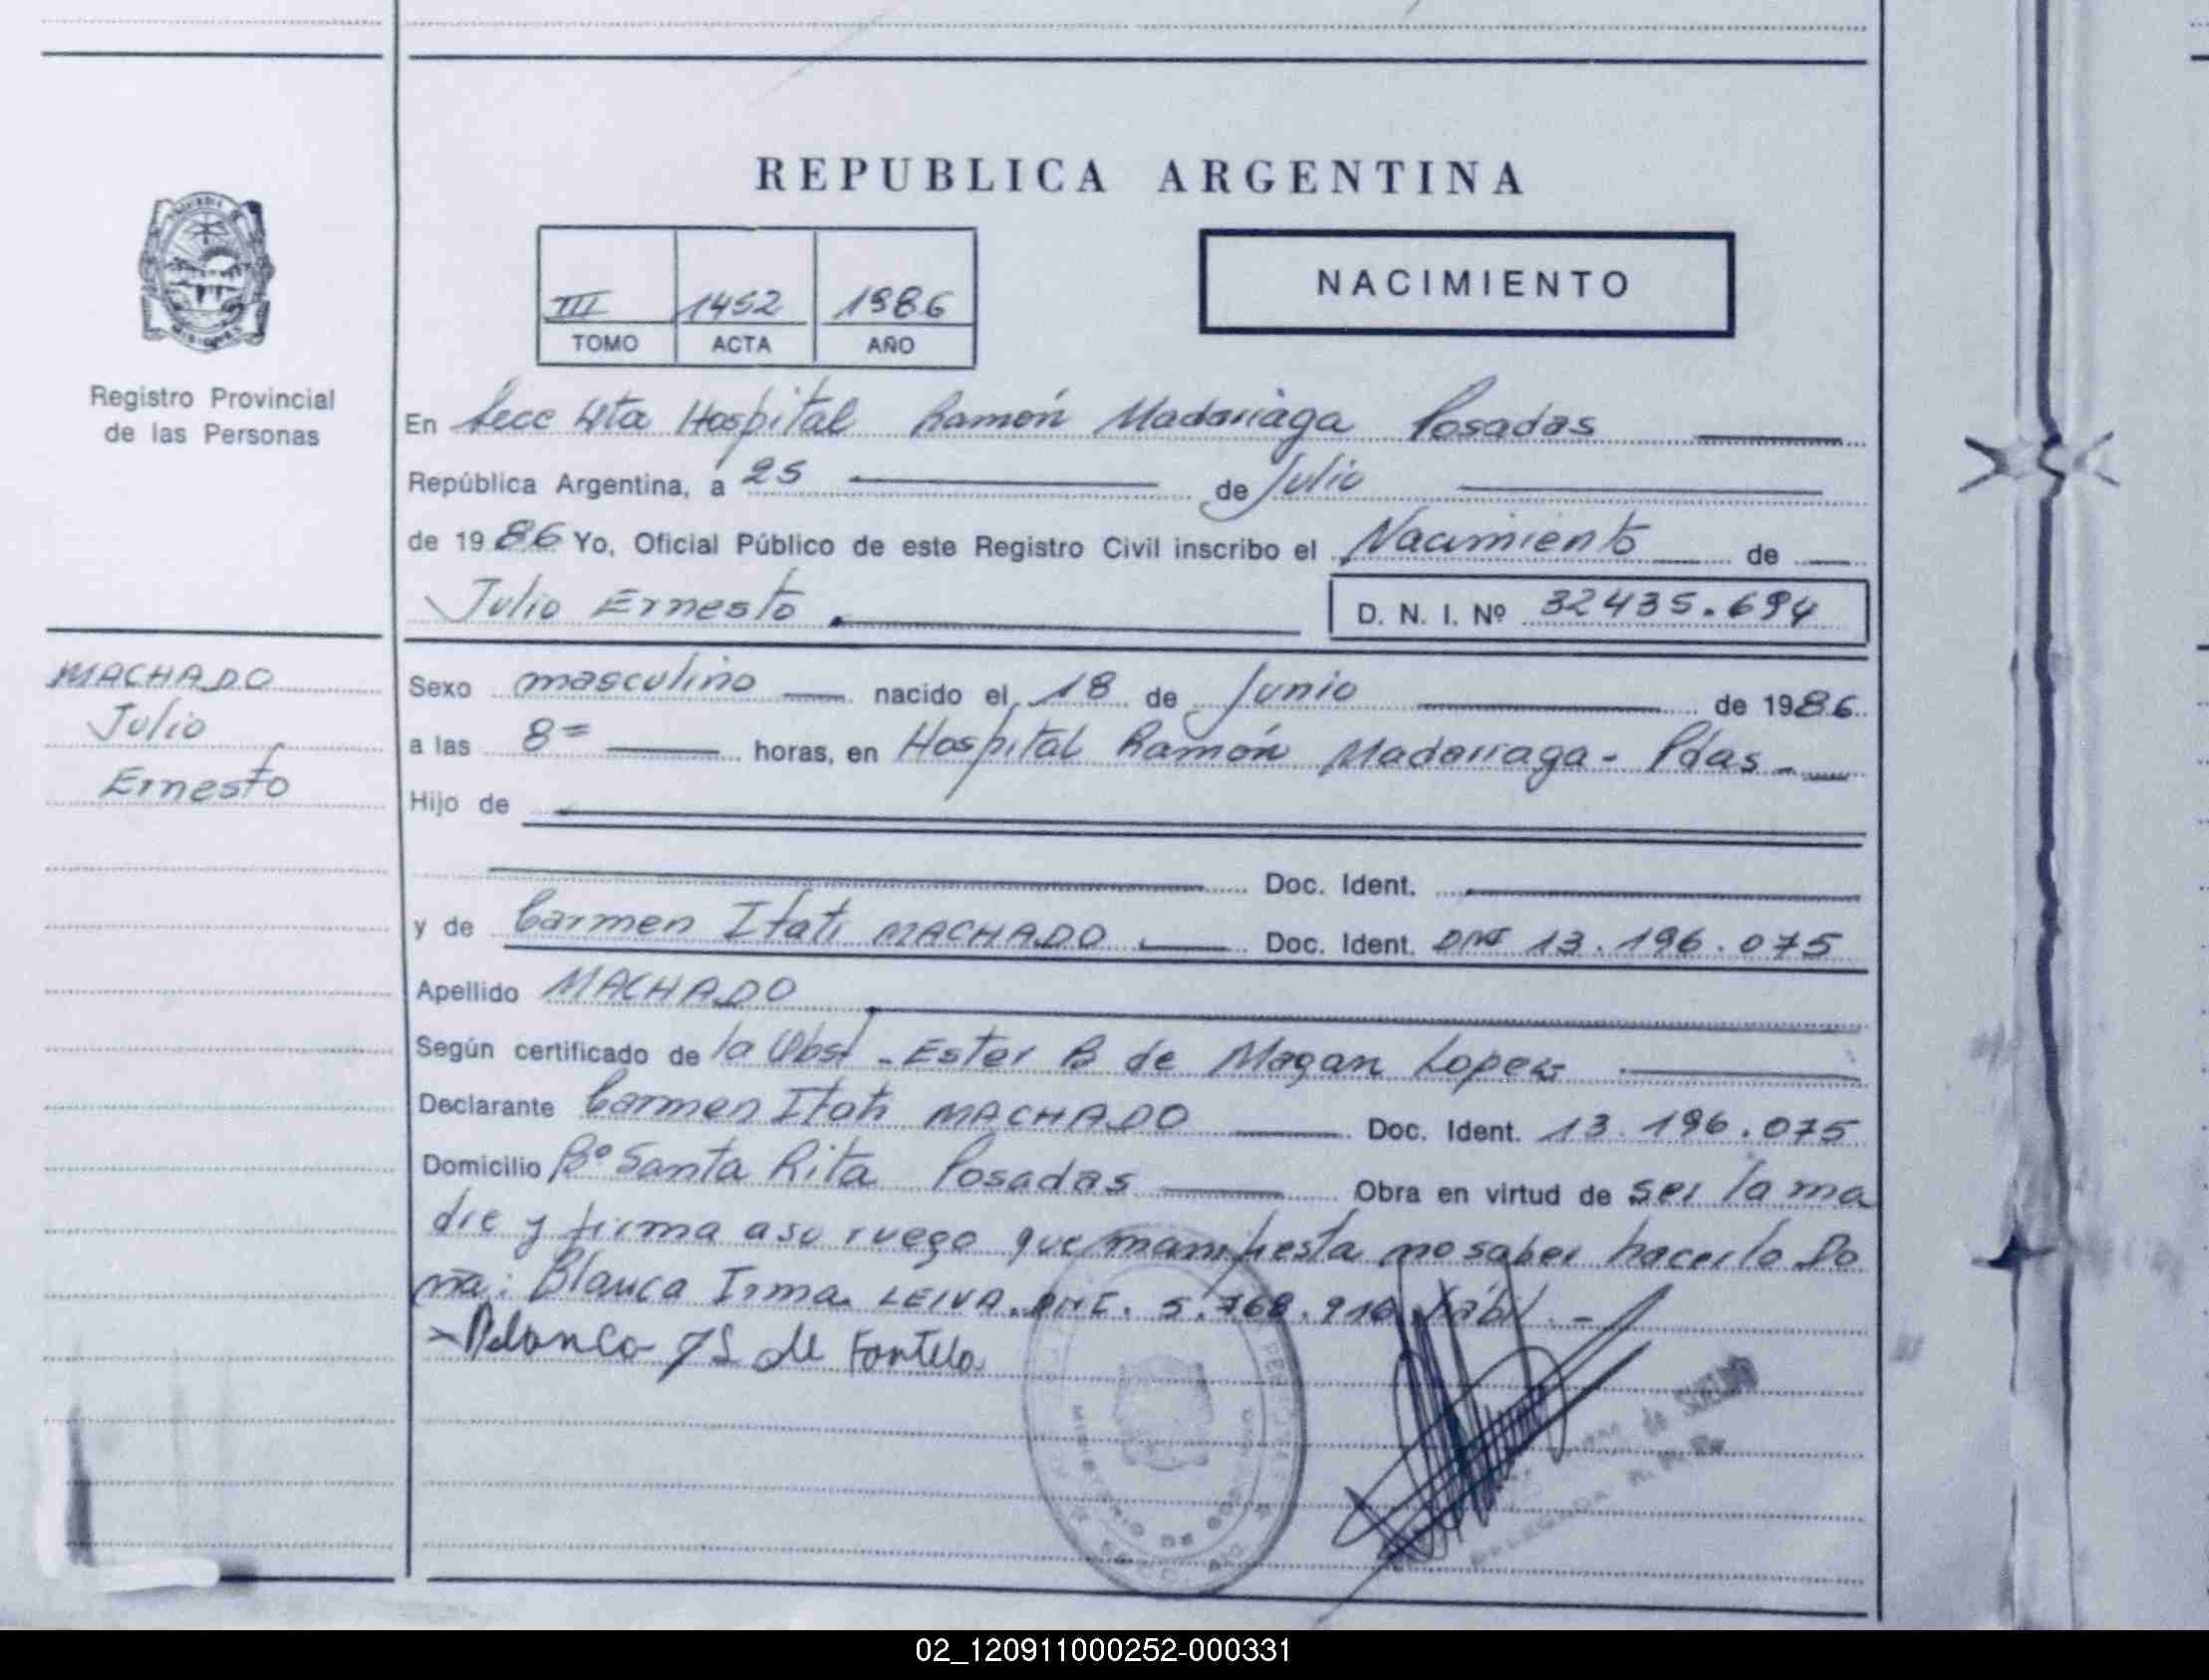 REPUBLICA ARGENTINA
III 1452 1986
TOMO ACTA AÑO
NACIMIENTO
Registro Provincial
de las Personas
En Secc 4ta Hospital Ramón Madariaga Posadas
República Argentina, a 25 de Julio
de 1986 Yo, Oficial Público de este Registro Civil inscribo el Nacimiento de
Julio Ernesto D. N. I. Nº 32435.694
MACHADO
Julio
Ernesto
Sexo masculino nacido el 18 de Junio de 1986
a las 8= horas, en Hospital Ramón Madariaga - Pdas -
Hijo de
Doc. Ident.
y de Carmen Itati MACHADO Doc. Ident. DNI 13.196.075
Apellido MACHADO
Según certificado de la Obst - Ester B de Magan Lopez
Declarante Carmen Itati MACHADO Doc. Ident. 13.196.075
Domicilio Bº Santa Rita Posadas Obra en virtud de ser la ma
dre y firma a su ruego que manifiesta no saber hacerlo Do
ña: Blanca Irma LEIVA. DNI. 5.768.916 hábil. -
Blanca de
MINISTERIO DE GOBIERNO
de SUELDO
DELEGADA
02_120911000252-000331